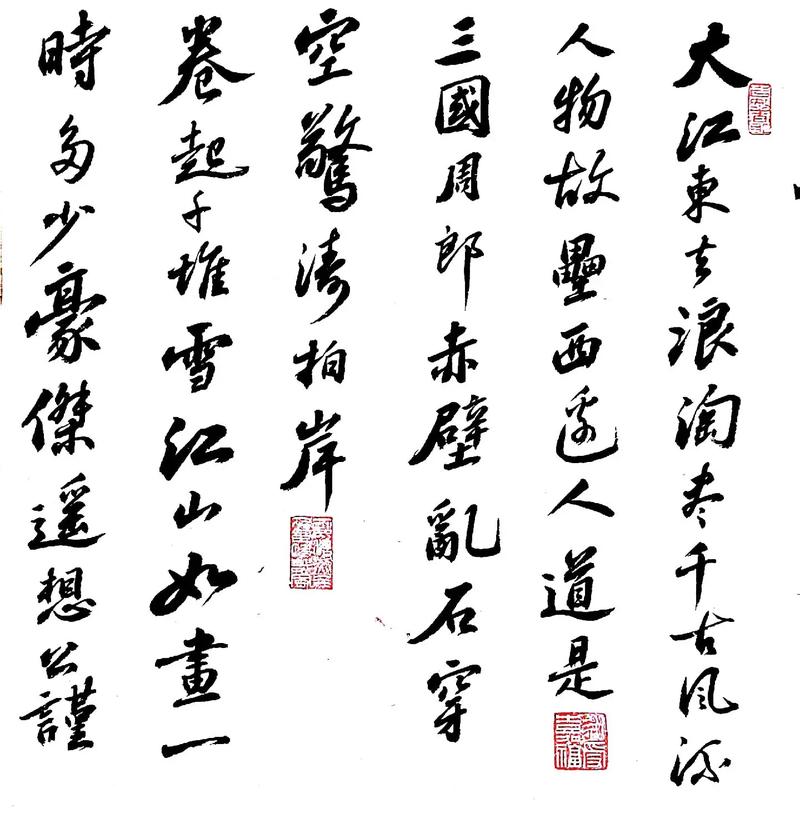 大江東去浪淘尽千古風流
人物故壘西邊人道是
三國周郎赤壁亂石穿
空驚濤拍岸
卷起千堆雪江山如畫一
時多少豪傑遥想公謹